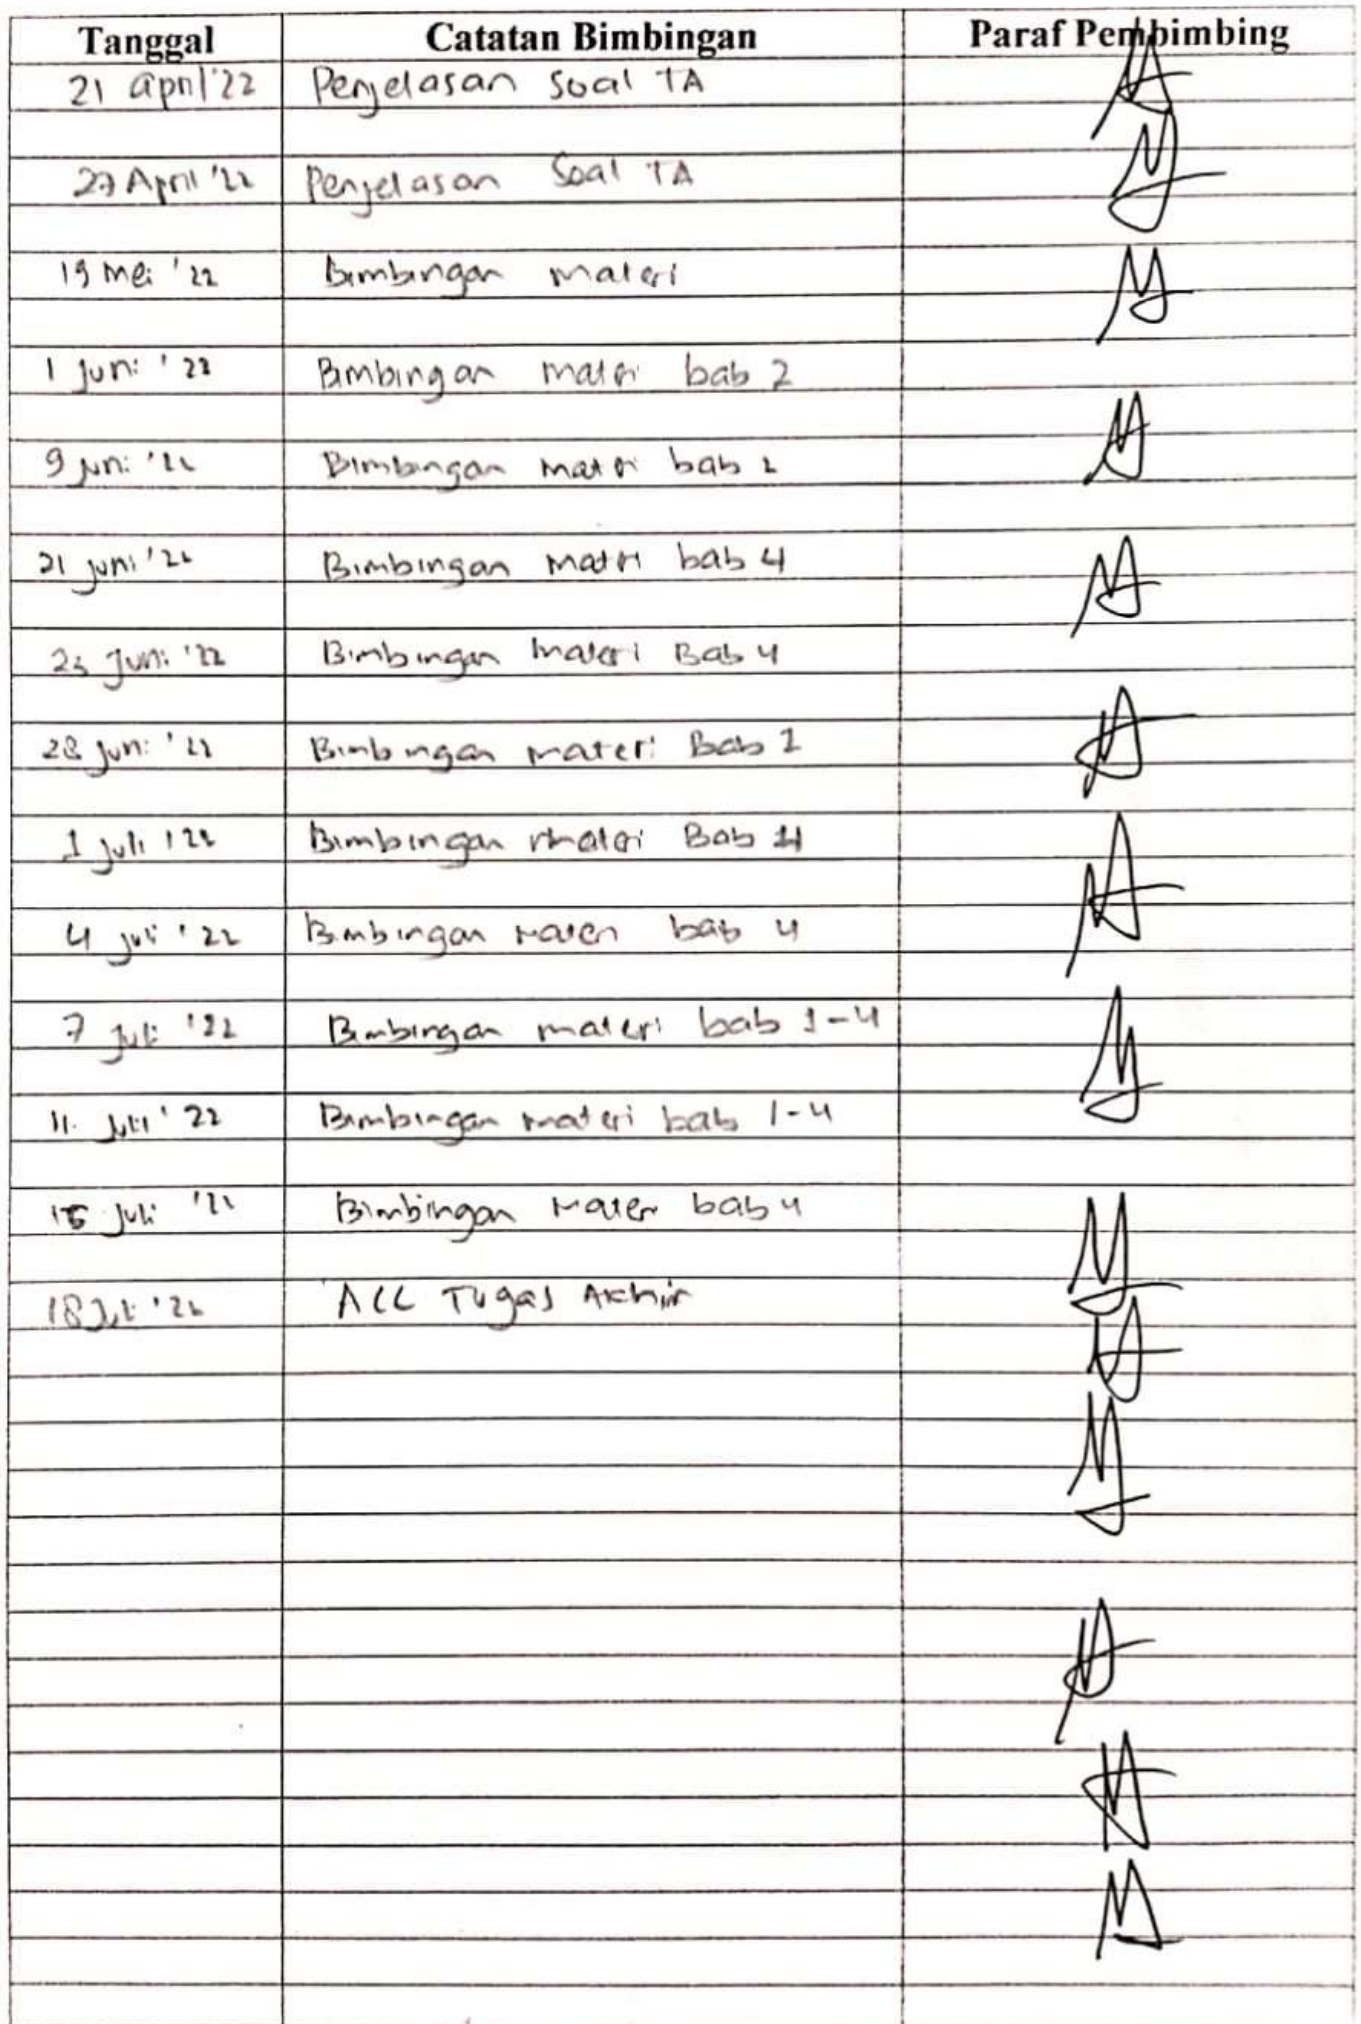 Tanggal Catatan Bimbingan Paraf Pembimbing
21 april '22 Penjelasan Soal TA
27 April '22 Penjelasan Soal TA
19 Mei '22 Bimbingan materi
1 Juni '22 Bimbingan materi bab 2
9 Juni '22 Bimbingan materi bab 2
21 juni '22 Bimbingan materi bab 4
23 Juni '22 Bimbingan Materi Bab 4
28 Juni '22 Bimbingan materi Bab 2
1 Juli '22 Bimbingan Materi Bab 4
4 juli '22 Bimbingan materi bab 4
7 Juli '22 Bimbingan materi bab 1-4
11 Juli '22 Bimbingan materi bab 1-4
15 Juli '22 Bimbingan Materi bab 4
18 Juli '22 ACC Tugas Akhir